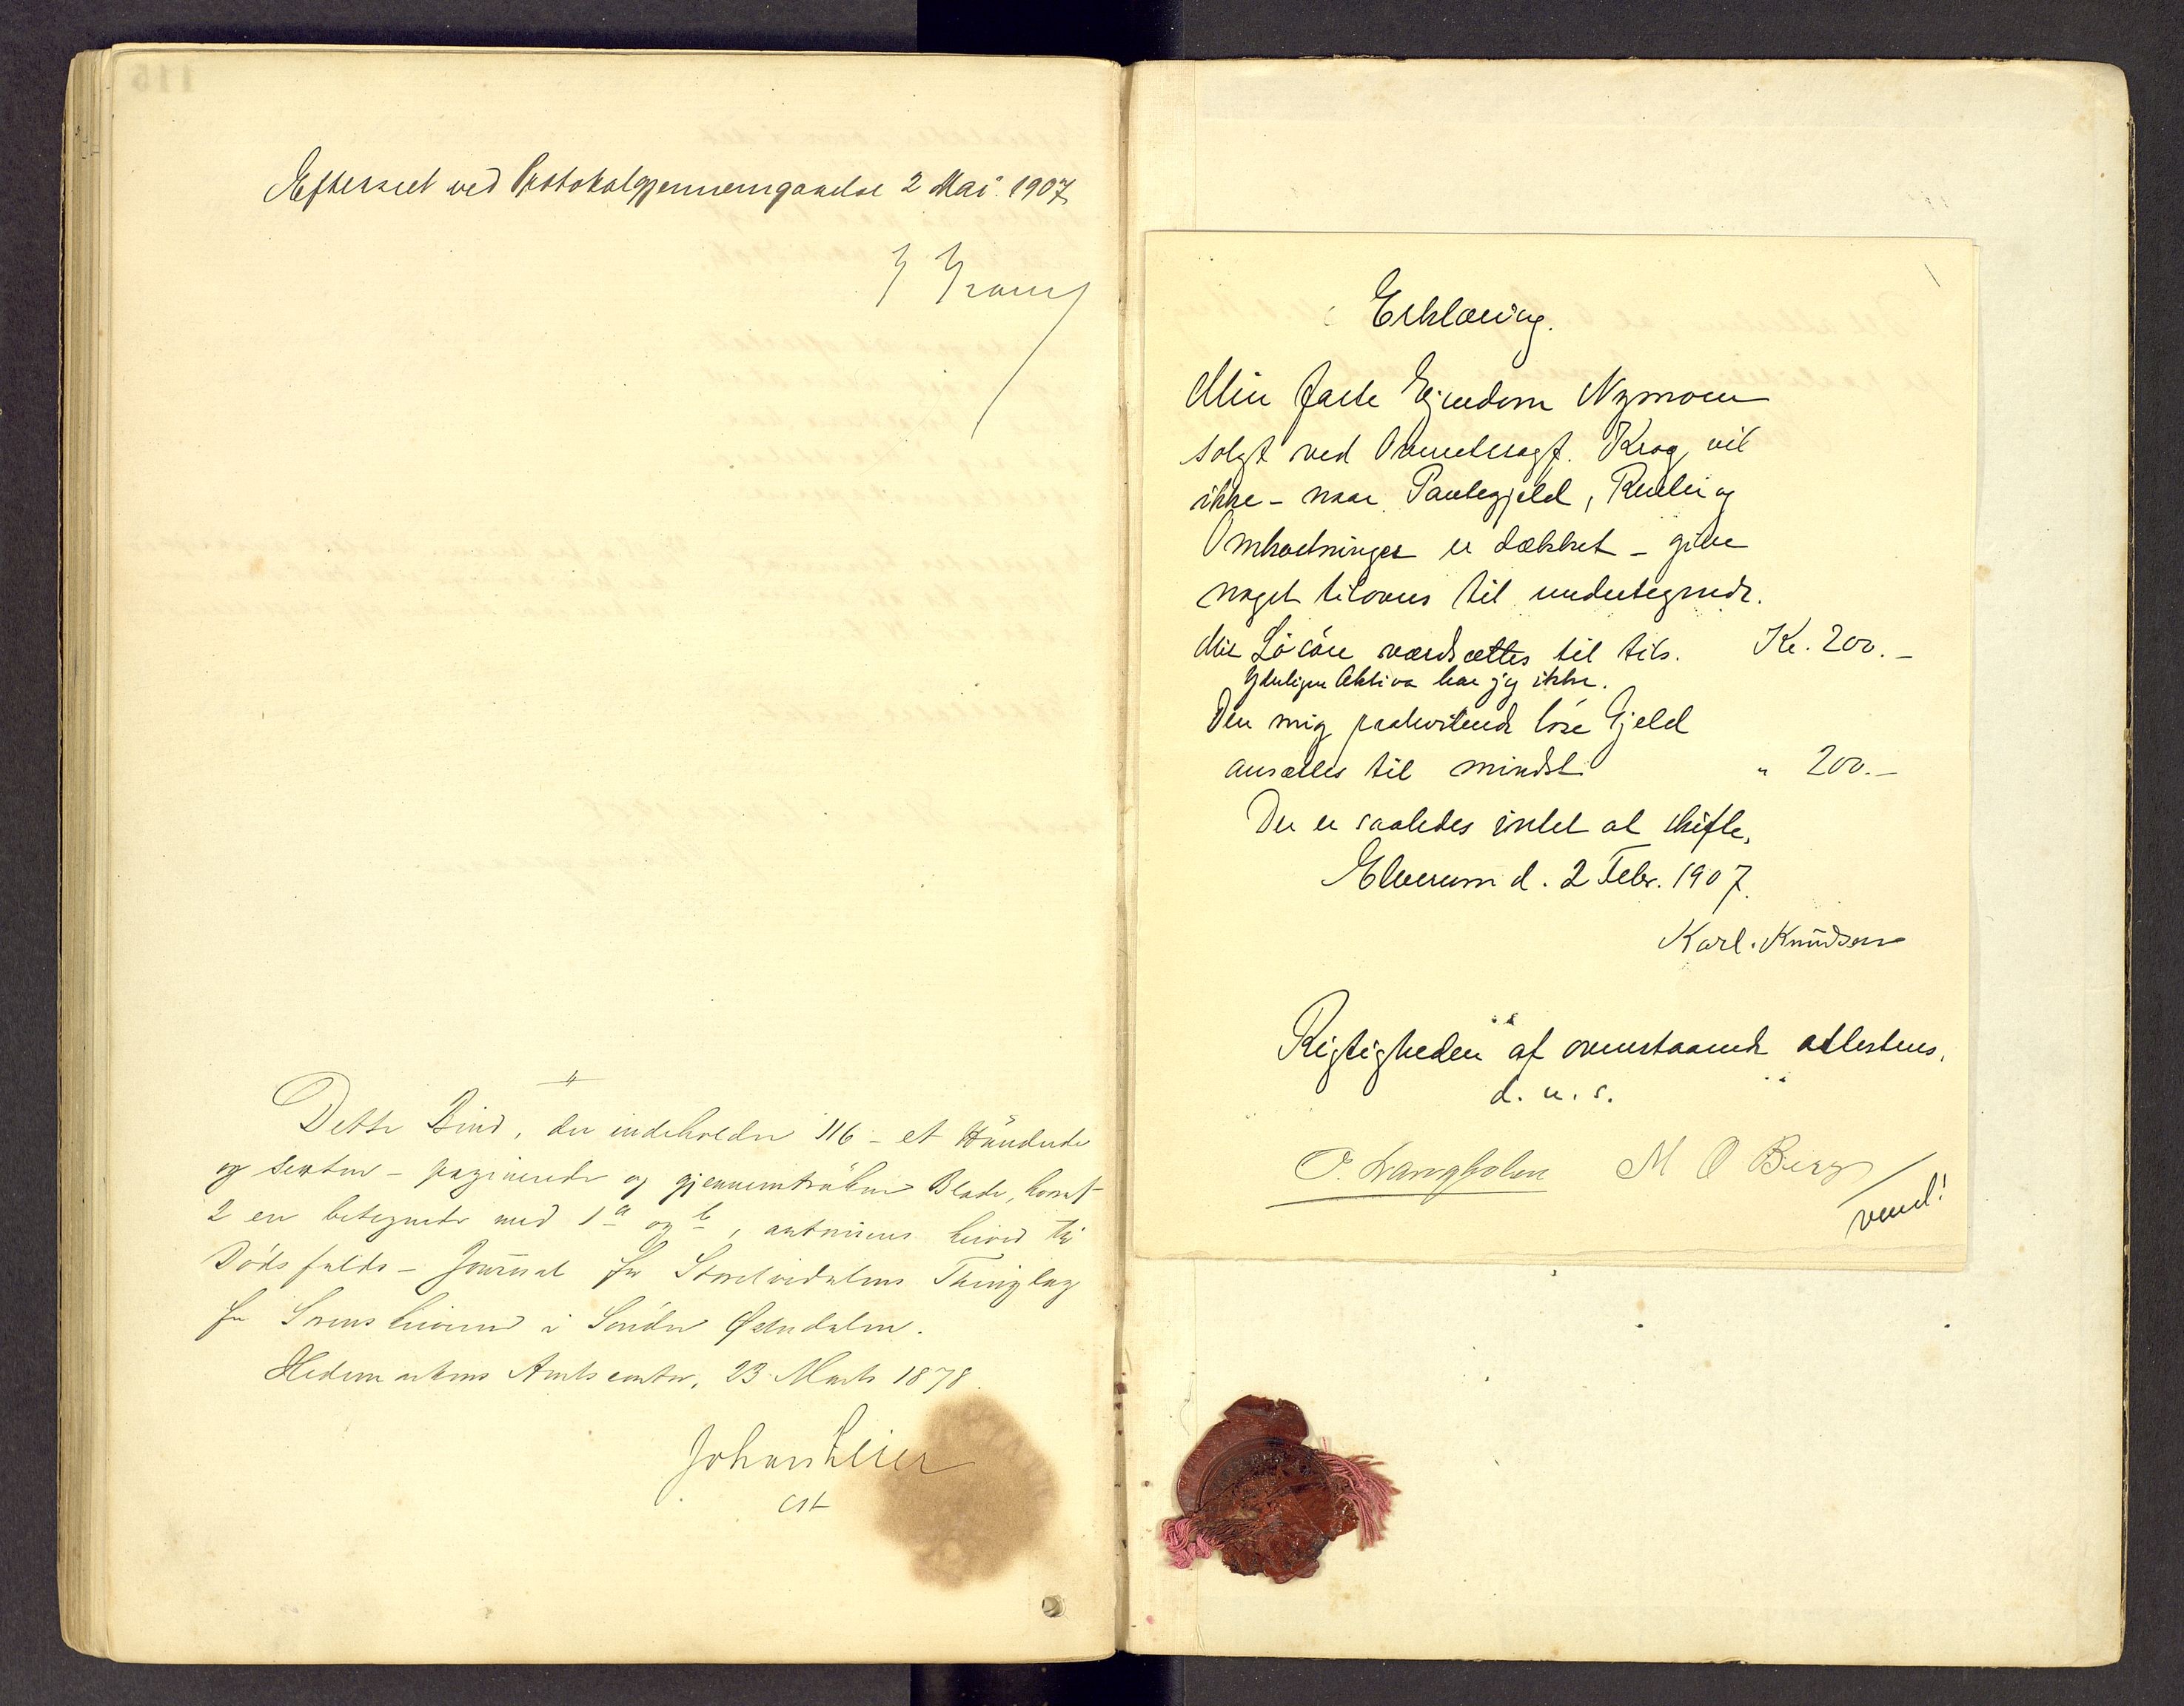 Efterseet ved Protokolgjennemgaaelse 2 Mai 1907
Dette Bind, der indeholder 116 - et Hundrede
og sexten - paginerede og gjennemtrukne Blade, hvoraf
2 er betegnede med 1 a og b, autoriseres herved til
Dødsfalds-Journal for Storelvedalens Thinglag
for Sorenskriveren i Søndre Østerdalen.
Hedemarkens Amtscontor, 23 Marts 1878.
cst
Erklæring.
Min faste Ejendom Nymoen
solgt ved Overretssagf. Krog vil
ikke - naar Pantegjeld, Renter og
Omkostninger er dækket - give
noget tilovers til undertegnede.
Mit Løsøre værdsættes til tils. Kr. 200.-
Yderligere Aktiva har jeg ikke.
Den mig paahvilende løse Gjeld
ansættes til mindst " 200.-
Der er saaledes intet at skifte.
Elverum d. 2 Febr. 1907.
Karl. Knudsen
Rigtigheden af ovenstaaende attesteres.
d. u. s.
O. Langholen M O Berg
vend!
115